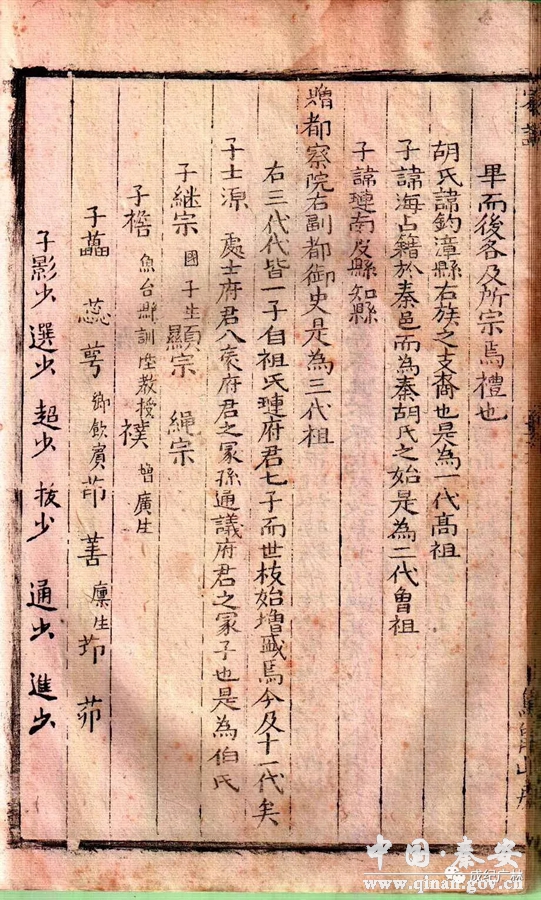 畢而後各及所宗焉禮也
胡氏諱鈞漳縣右族之支裔也是為一代高祖
子諱海占籍於秦邑而為秦胡氏之始是為二代曾祖
子諱璉南皮縣知縣
贈都察院右副都御史是為三代祖
右三代代皆一子自祖氏璉府君七子而世枝始增盛焉今及十一代矣
子士源 處士府君八蒙府君之冢孫通議府君之冢子也是為伯氏
子継宗 國子生 顯宗 绳宗
子檐 魚台縣訓陞教授 襆 增廣生
子藟 蕊 萼 鄉飲賓 茆 善 廪生 茆
子影少 選少 超少 拔少 通少 進少
中国·秦安
www.qinan.gov.cn
成纪广林